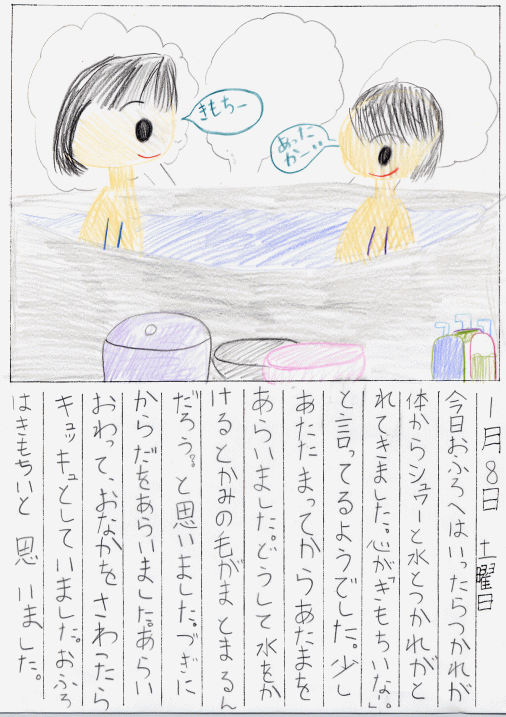 きもちー
あった
かー‥
1月8日 土曜日
今日おふろへはいったらつかれが
体からシュワーと水とつかれがと
れてきました。心が「きもちいな」。
と言ってるようでした。少し
あたたまってからあたまを
あらいました。どうして水をか
けるとかみの毛がまとまるん
だろう?と思いました。づぎに
からだをあらいました。あらい
おわって、おなかをさわったら
キュッキュとしていました。おふろ
はきもちいと 思 いました。